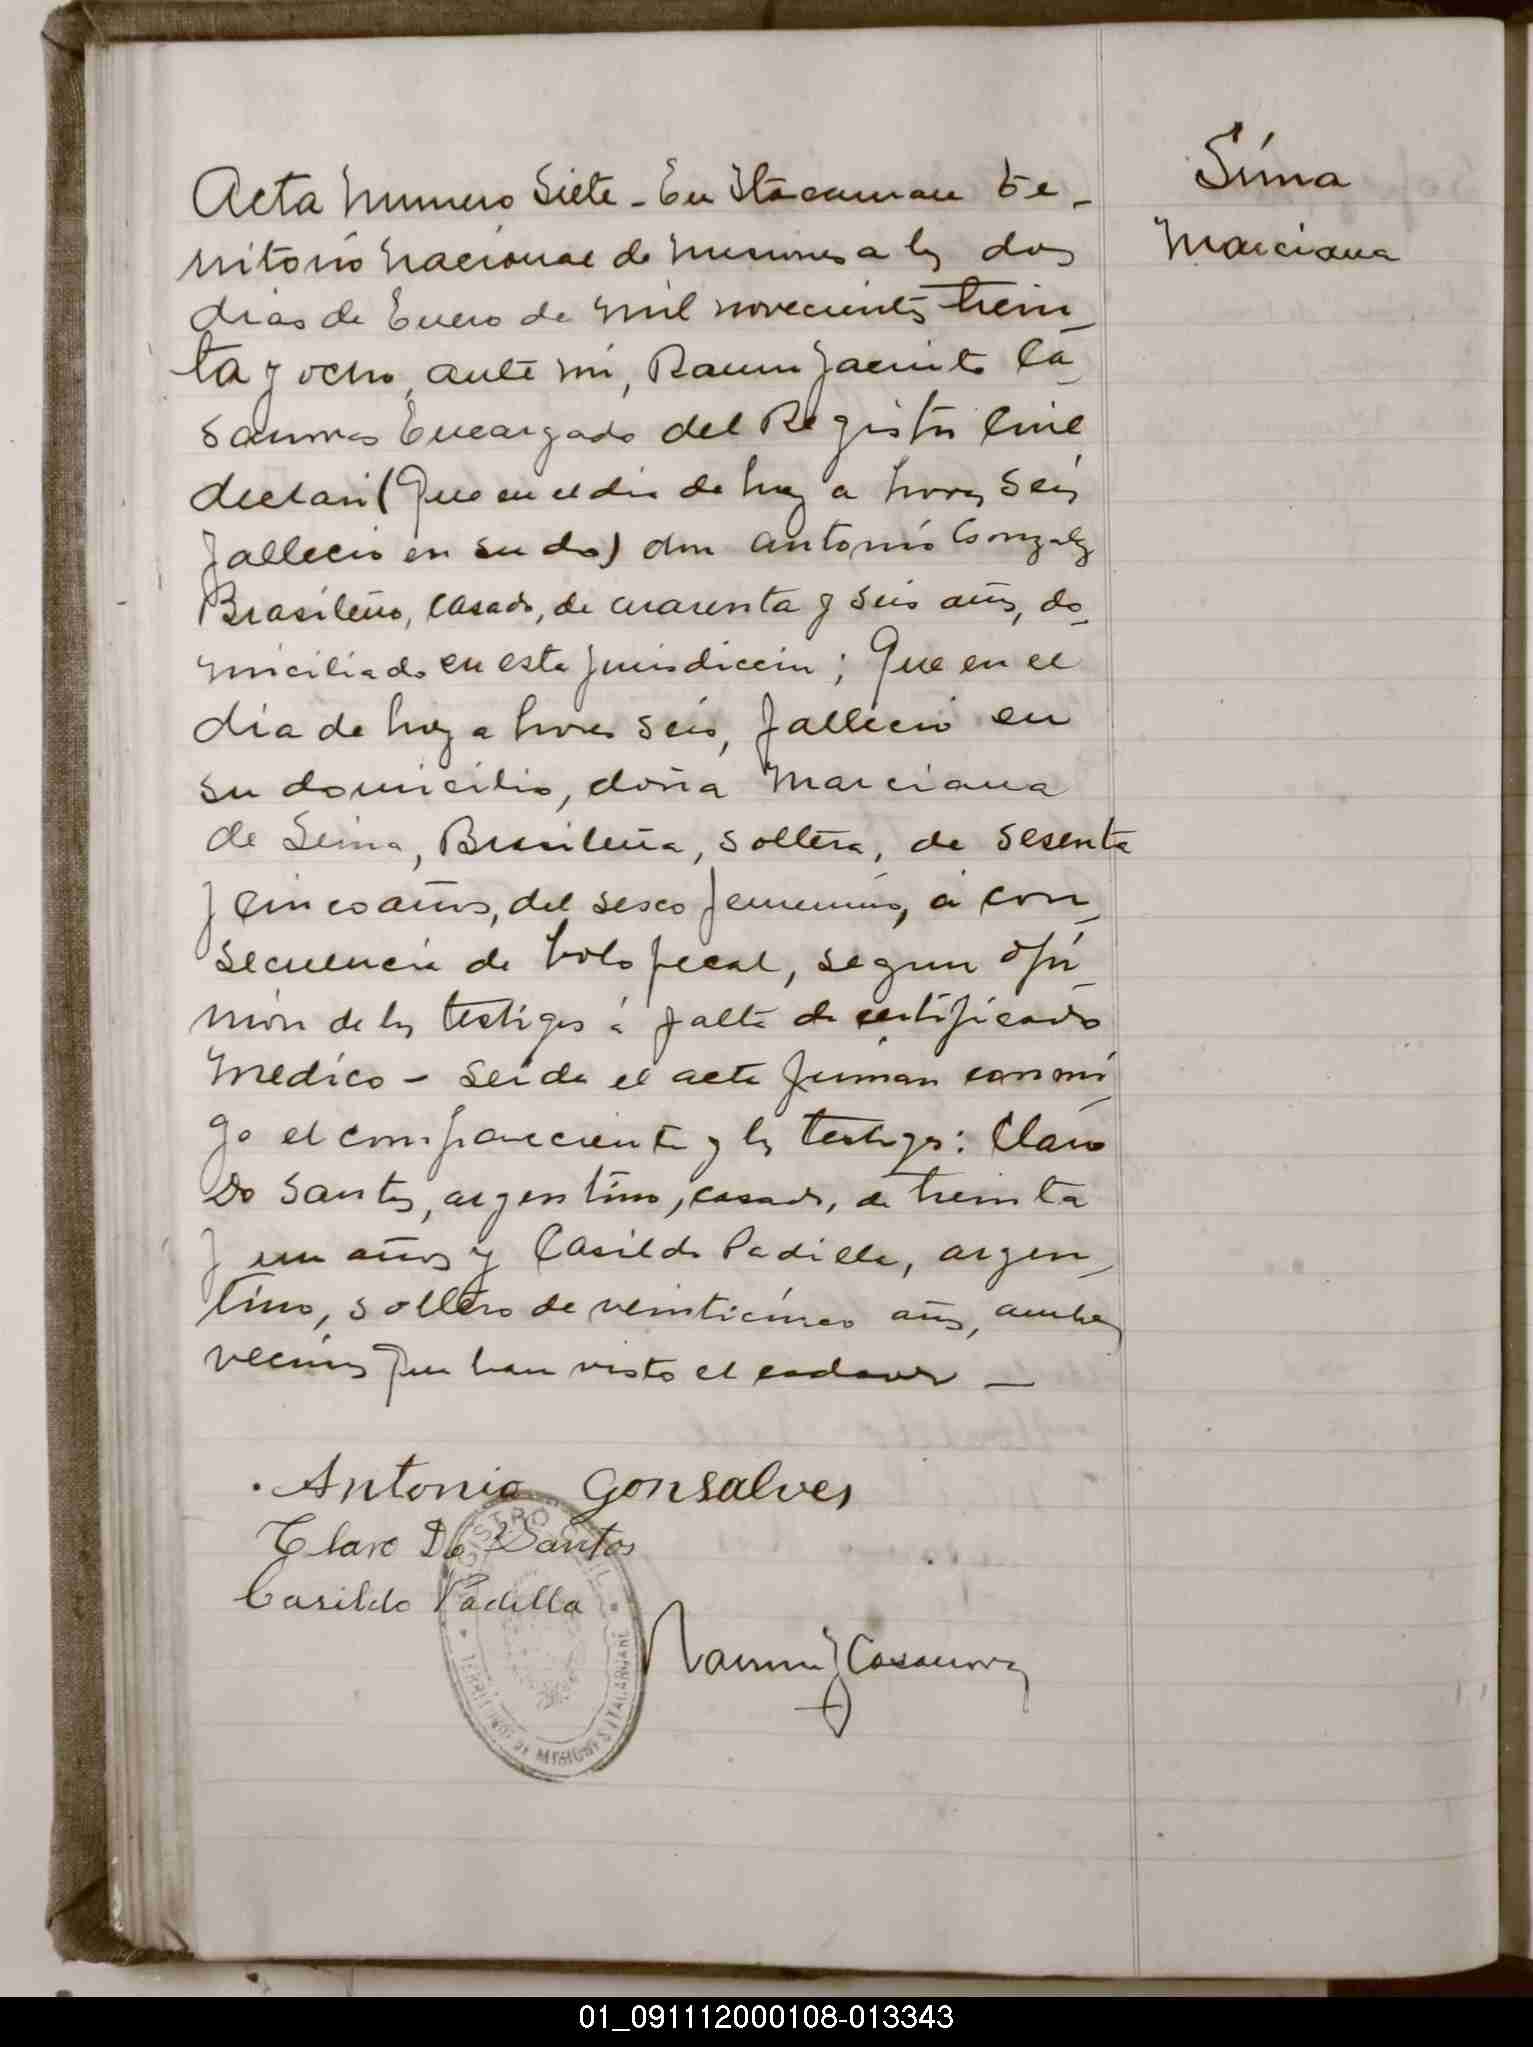 Acta Numero Siete - En Itacaruare Te-
rritorio Nacional de Misiones a los dos
dias de Enero de mil novecientos trein-
ta y ocho, ante mi, Ramon Jacinto Ca-
sanovas Encargado del Registro Civil
declaró (Que en el dia de hoy a horas seis
fallecio en su do) don Antonio Gonzalez
Brasileño, casado, de cuarenta y seis años, do-
miciliado en esta jurisdiccion; Que en el
dia de hoy a horas seis, falleció en
su domicilio, doña Marciana
de Lima, Brasileña, soltera, de sesenta
y cinco años, del sexo femenino, á con-
secuencia de bolo fecal, segun opi-
nión de los testigos á falta de certificado
Medico - Leida el acta firman conmi-
go el compareciente y los testigos: Claro
Do Santos, argentino, casado, de treinta
y un años y Casildo Padilla, argen-
tino, soltero de veinticinco años, ambos
vecinos que han visto el cadaver -
Antonio Gonsalves
Claro Do Santos
Casildo Padilla
Ramon J Casanovas
REGISTRO CIVIL
TERRITORIO DE MISIONES ITACARUARÉ
Lima
Marciana
01_091112000108-013343